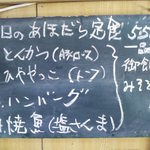 日のあほだら定食 555
とんかつ(豚ロース)
ひややっこ(トーフ)
ハンバーグ
焼魚(塩さんま)
一品
御飯
みそ